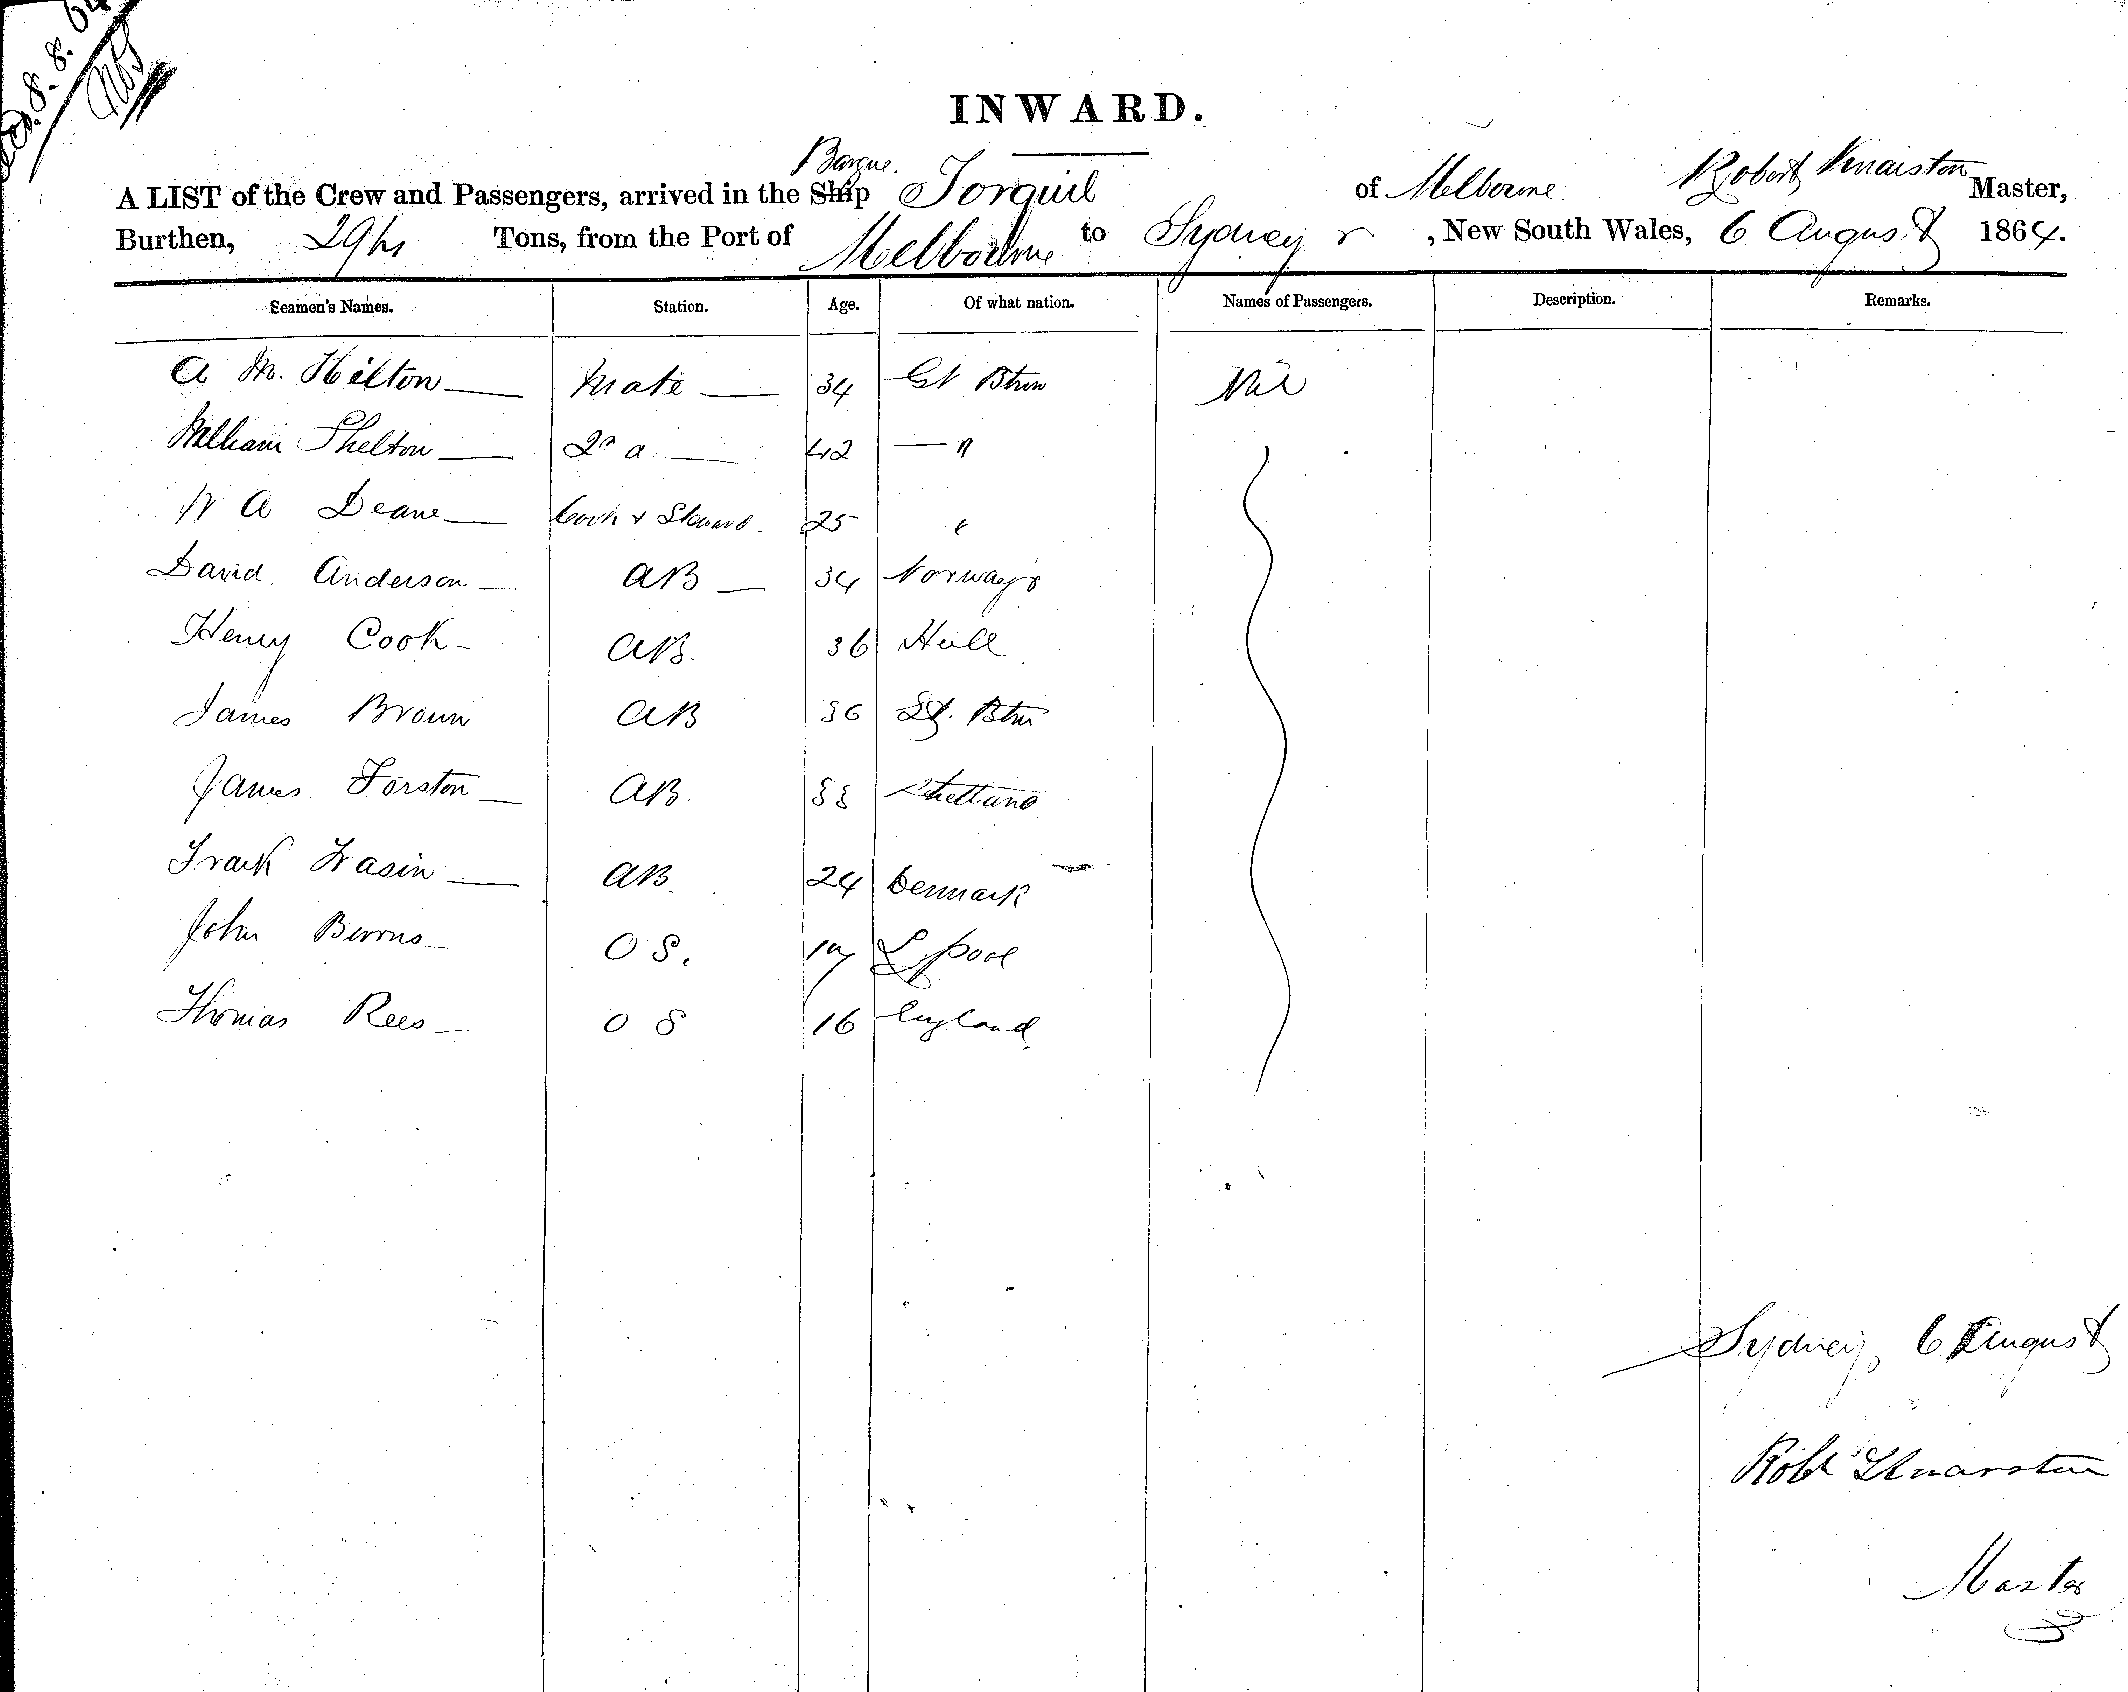 8.8.64
INWARD.
Barque
A LIST of the Crew and Passengers, arrived in the Ship Torquil of Melbourne Robert Knarston Master,
Burthen, Tons, from the Port of Melbourne to Sydney , New South Wales, 6 August 1864.
Seamen's Names. Station. Age. Of what nation. Names of Passengers. Description. Remarks.
A M. Hilton — Mate — 34 Gt Btn Nil
William Shelton — 2n d — 42 — "
W A Deane — Cook & Steward 25 "
David Anderson — AB — 34 Norway
Henry Cook - AB. 36 Hull
James Brown AB 36 Gt. Btn
James Forston — AB. 33 Shetland
Frank AB. 24 Denmark
John Burns - O S. 17 L pool
Thomas Rees — O S 16 England
Sydney, 6 August
Robt Knarston
Master